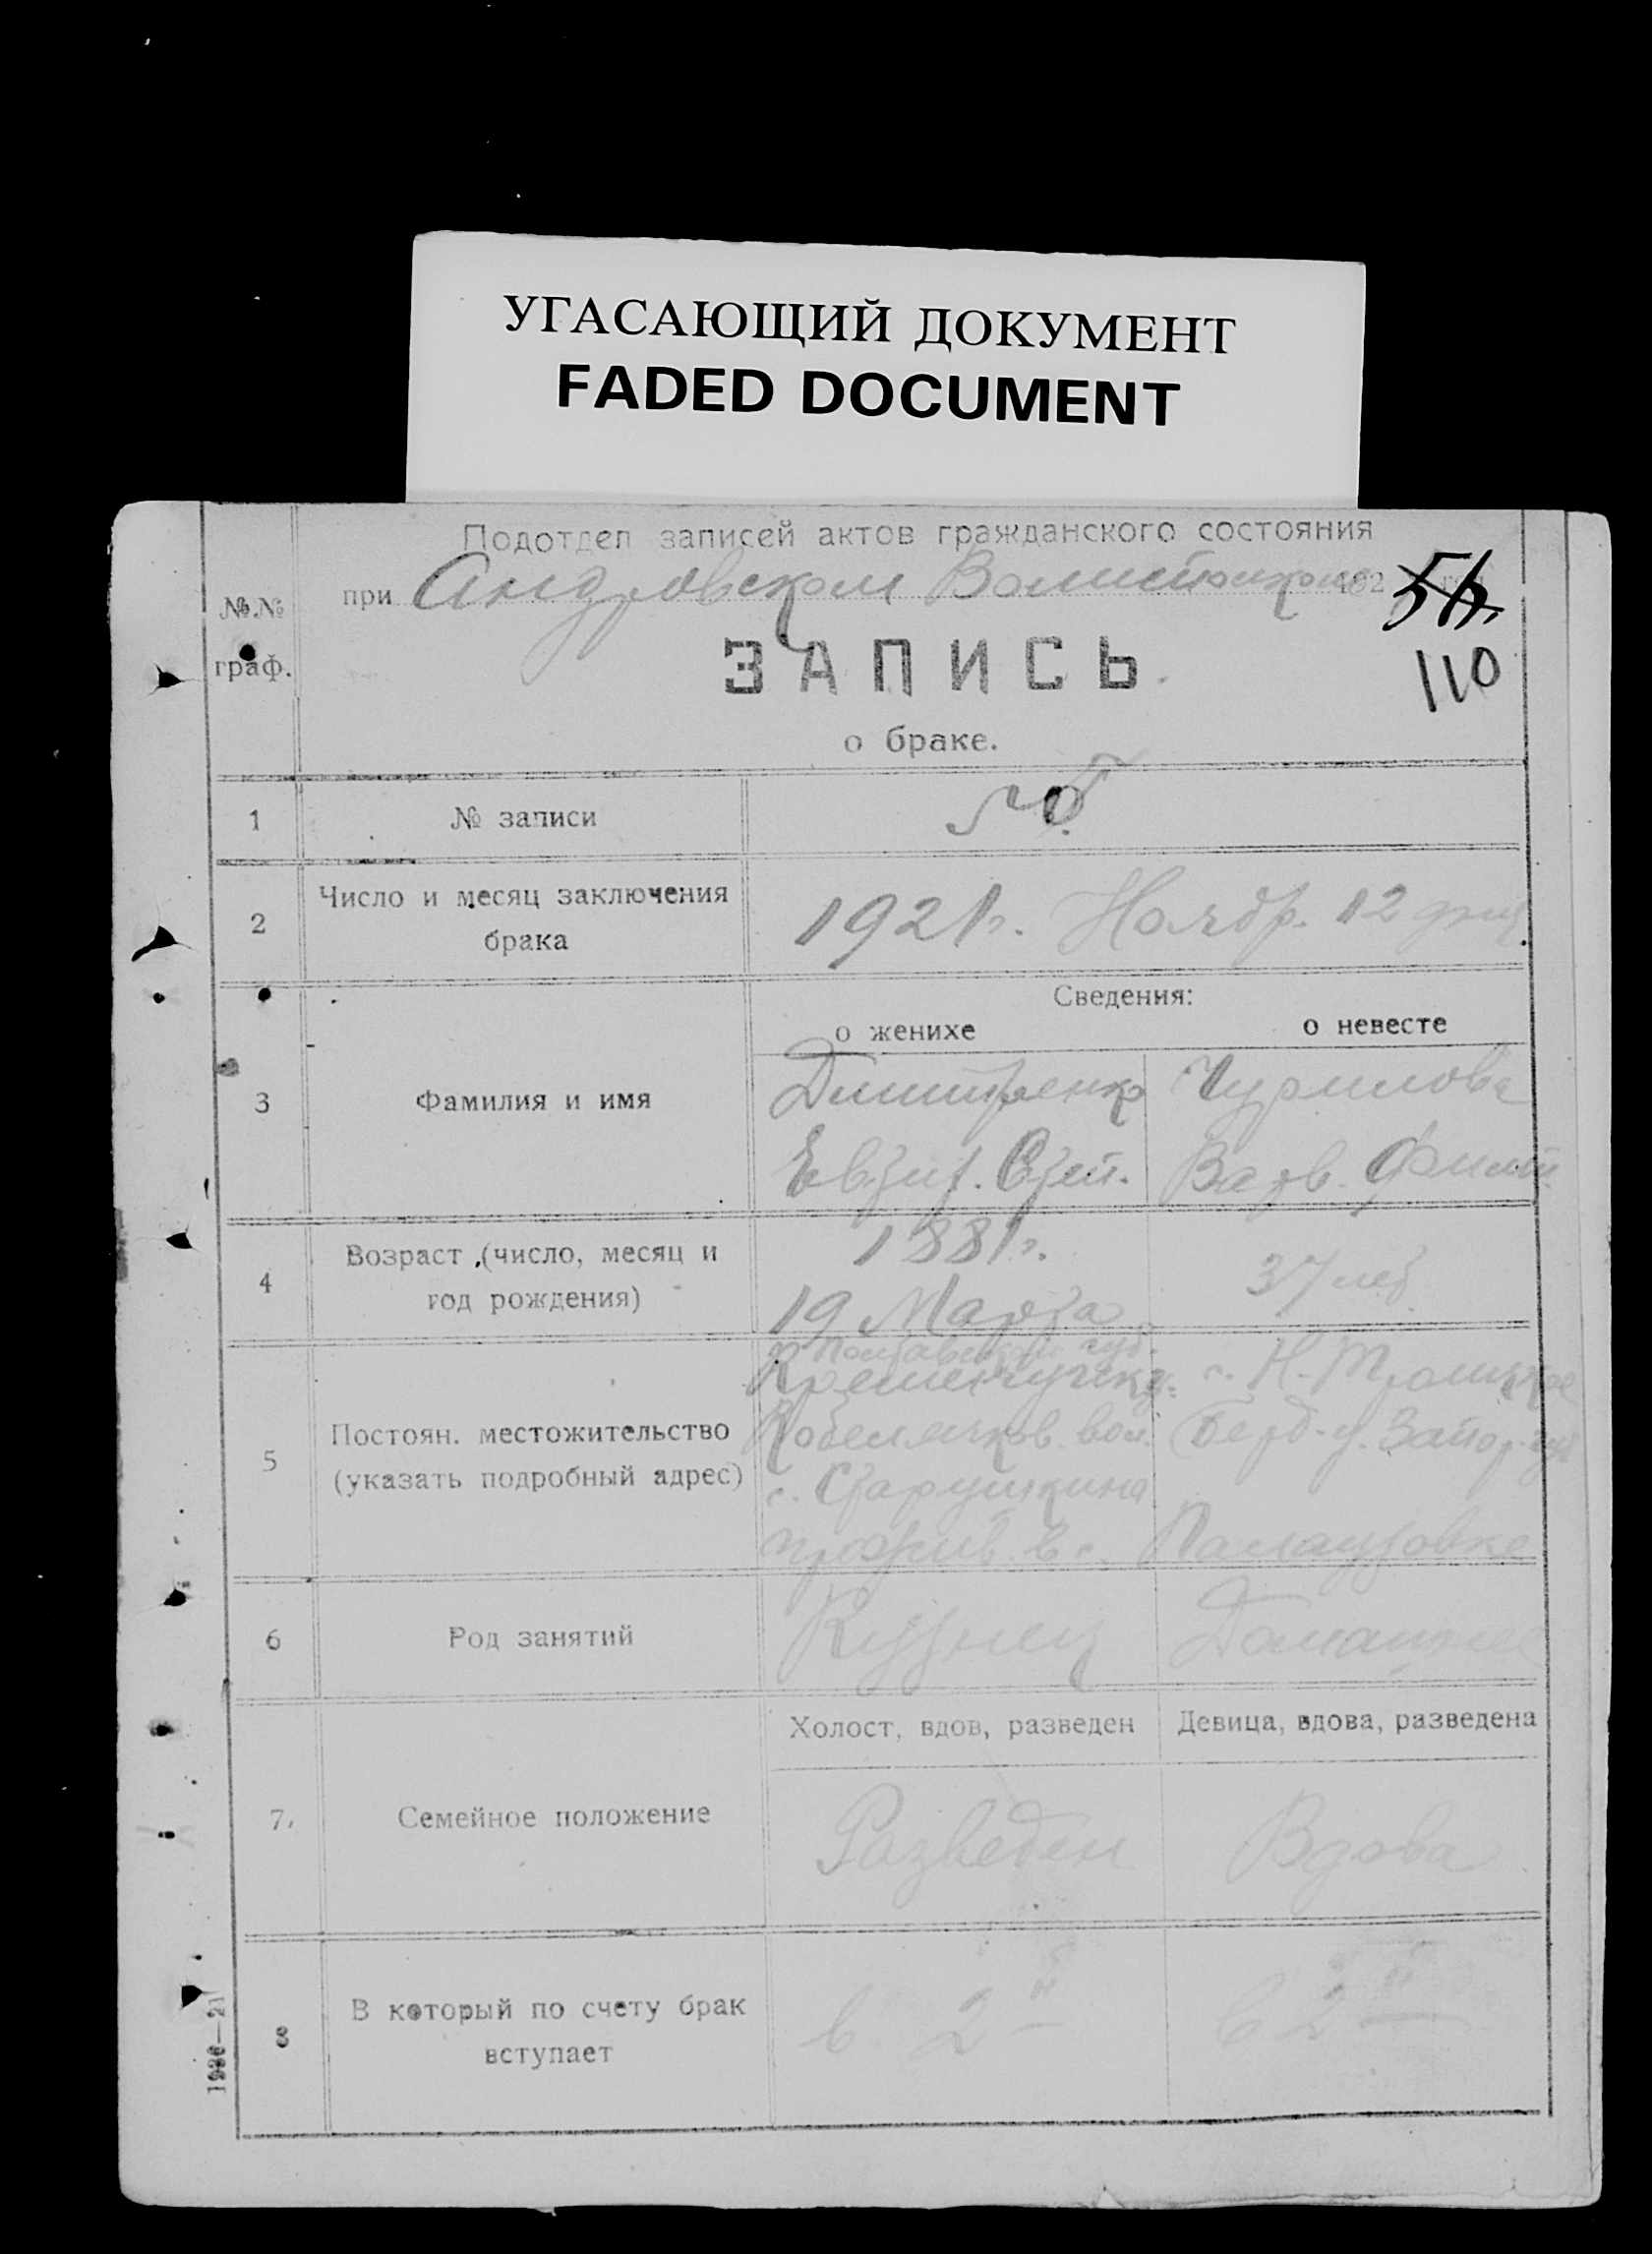 УГАСАЮЩИЙ ДОКУМЕНТ
FADED DOCUMENT
Подотдел записей актов гражданского состояния
при Андровском 192
51
110
№№
граф.
ЗАПИСЬ
о браке.
1 № записи
2 Число и месяц заключения
брака
1921 г. Ноябр. 12 дня
Сведения:
о женихе о невесте
3 Фамилия и имя
Дмитренко Чурилова
Варв. Филип.
4 Возраст (число, месяц и
год рождения)
1881 г.
19 Марта
37 лет
5 Постоян. местожительство
(указать подробный адрес)
Полтавской губ.
Кременчугск. у. с. Н. Троицкое
Кобелячков. вол. Берд. у. Запор. губ
с.
прожив. в с.
6 Род занятий
Кузнец
7. Семейное положение
Холост, вдов, разведен Девица, вдова, разведена
Разведен Вдова
8 В который по счету брак
вступает
в 2й в 2й
1920—21